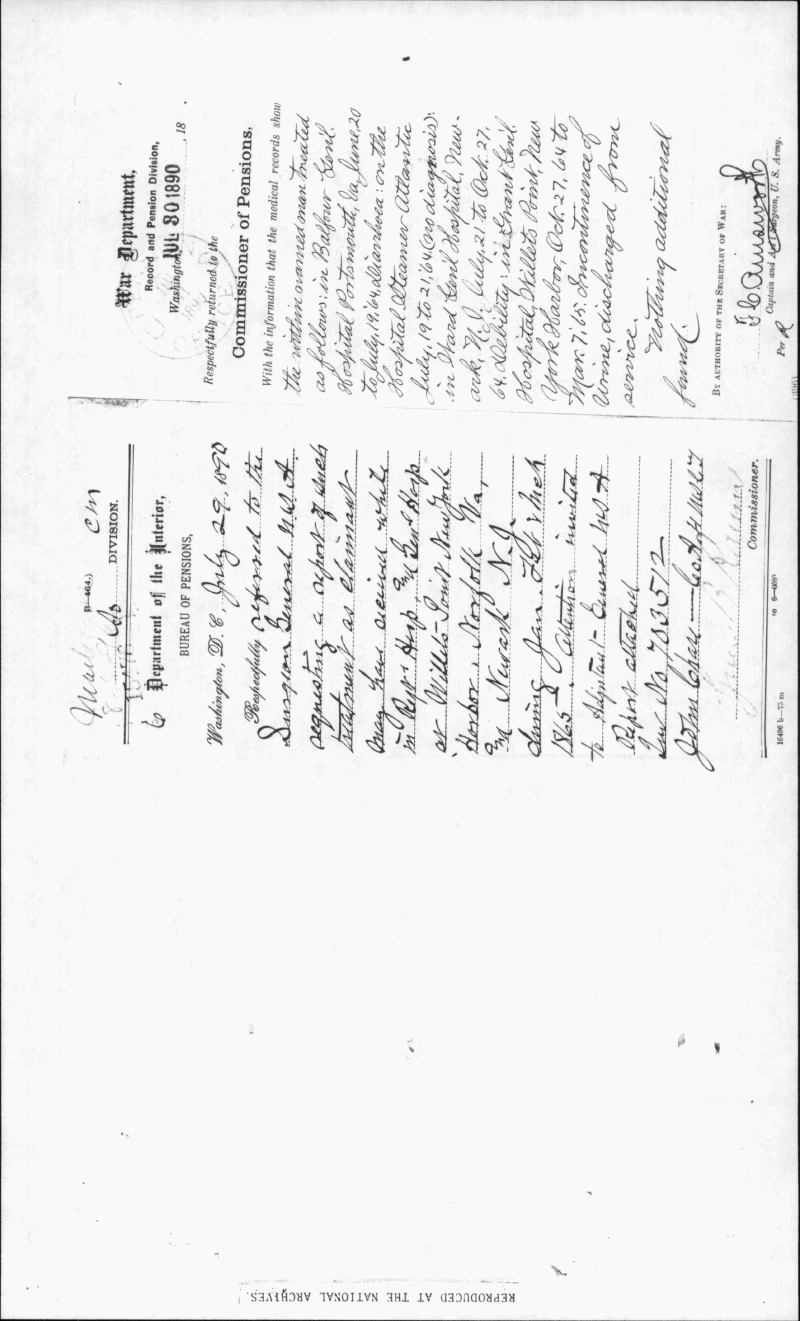 (3—464.)
C M
DIVISION.
Department of the Interior,
BUREAU OF PENSIONS,
Washington, D. C. July 29, 1890
Respectfully referred to the
Surgeon General U.S.A.
requesting a report of such
treatment as claimant
may have received while
in Regt Hosp and Genl Hosp
at Willets Point New York
Harbor, Norfolk Va,
and Newark N.J.
during Jan. Feb & Mch
1865 attention invited
to Adjutant General U S A
Report attached
Inv No 783512
John Gray
Commissioner.
16496 b—75 m
War Department,
Record and Pension Division,
Washington, JUL 30 1890, 18
Respectfully returned to the
Commissioner of Pensions,
With the information that the medical records show
the within named man treated
as follows: in Balfour Genl.
Hospital Portsmouth, Va, June 20
to July, 19, 64, diarrhoea: on the
Hospital Steamer Atlantic
July, 19 to 21, 64 (no diagnosis):
in Ward Genl Hospital, New-
ark, N.J. July, 21 to Oct. 27,
64. Debility: in Grant Genl.
Hospital, Willets Point, New
York Harbor, Oct. 27, 64 to
Mar. 7, 65. Incontinence of
Urine, discharged from
service.
Nothing additional
found.
BY AUTHORITY OF THE SECRETARY OF WAR:
F. C. Ainsworth
Captain and Ass't Surgeon, U. S. Army.
Per R
REPRODUCED AT THE NATIONAL ARCHIVES.